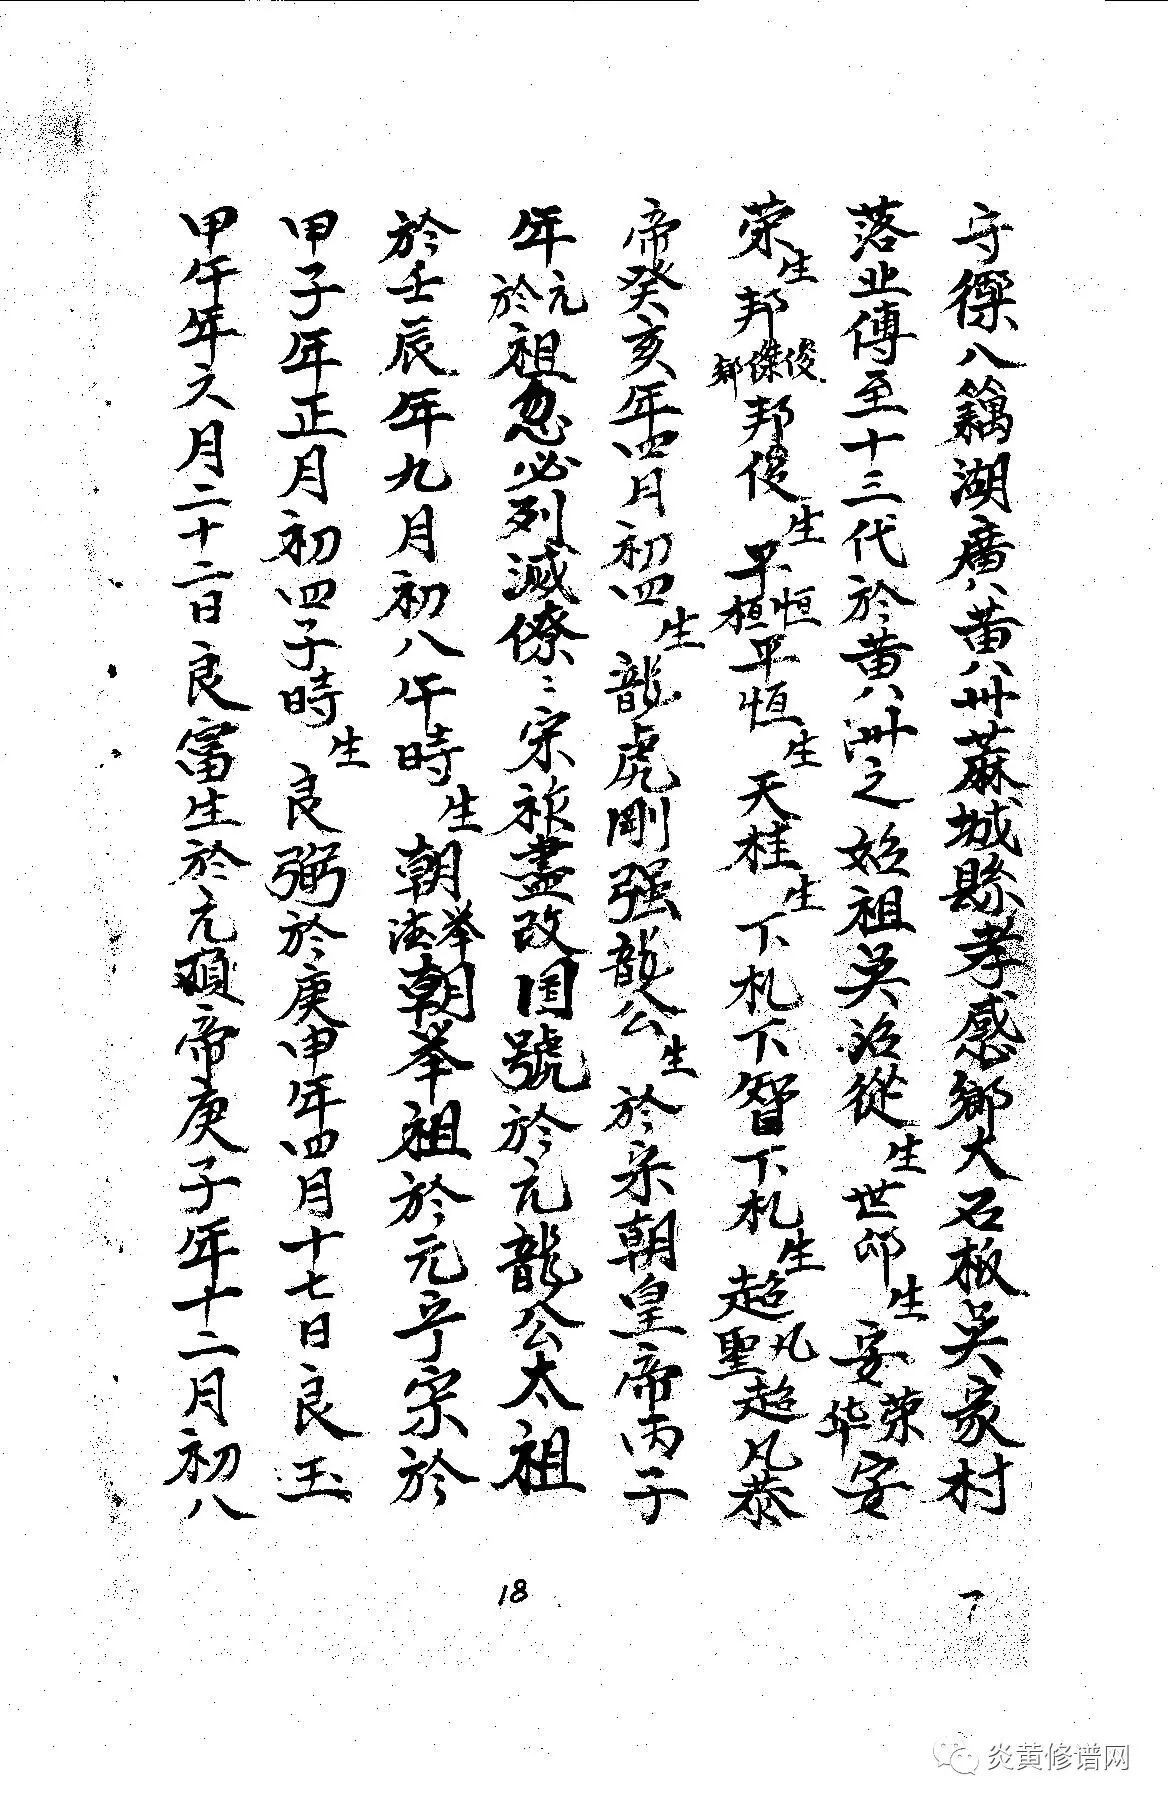 守禦八籍湖廣黄州蔴城縣孝感鄉大石板吳家村
落业傳至十三代於黄州之始祖吳治從生世邱生安荣华安
荣生邦俊傑邦俊生平恒桓平恒生天桂生下札下智下札生超凡聖超凡恭
帝癸亥年四月初四生龍虎剛强龍公生於宋朝皇帝丙子
年於元祖忽必列滅僚〻宋祚盡改国號於元龍公太祖
於壬辰年九月初八午時生朝举法朝举祖於元宗於
甲子年正月初四子時生良弼於庚申年四月十七日良玉
甲午年六月二十二日良富生於元順帝庚子年十二月初八
18
7
炎黄修谱网